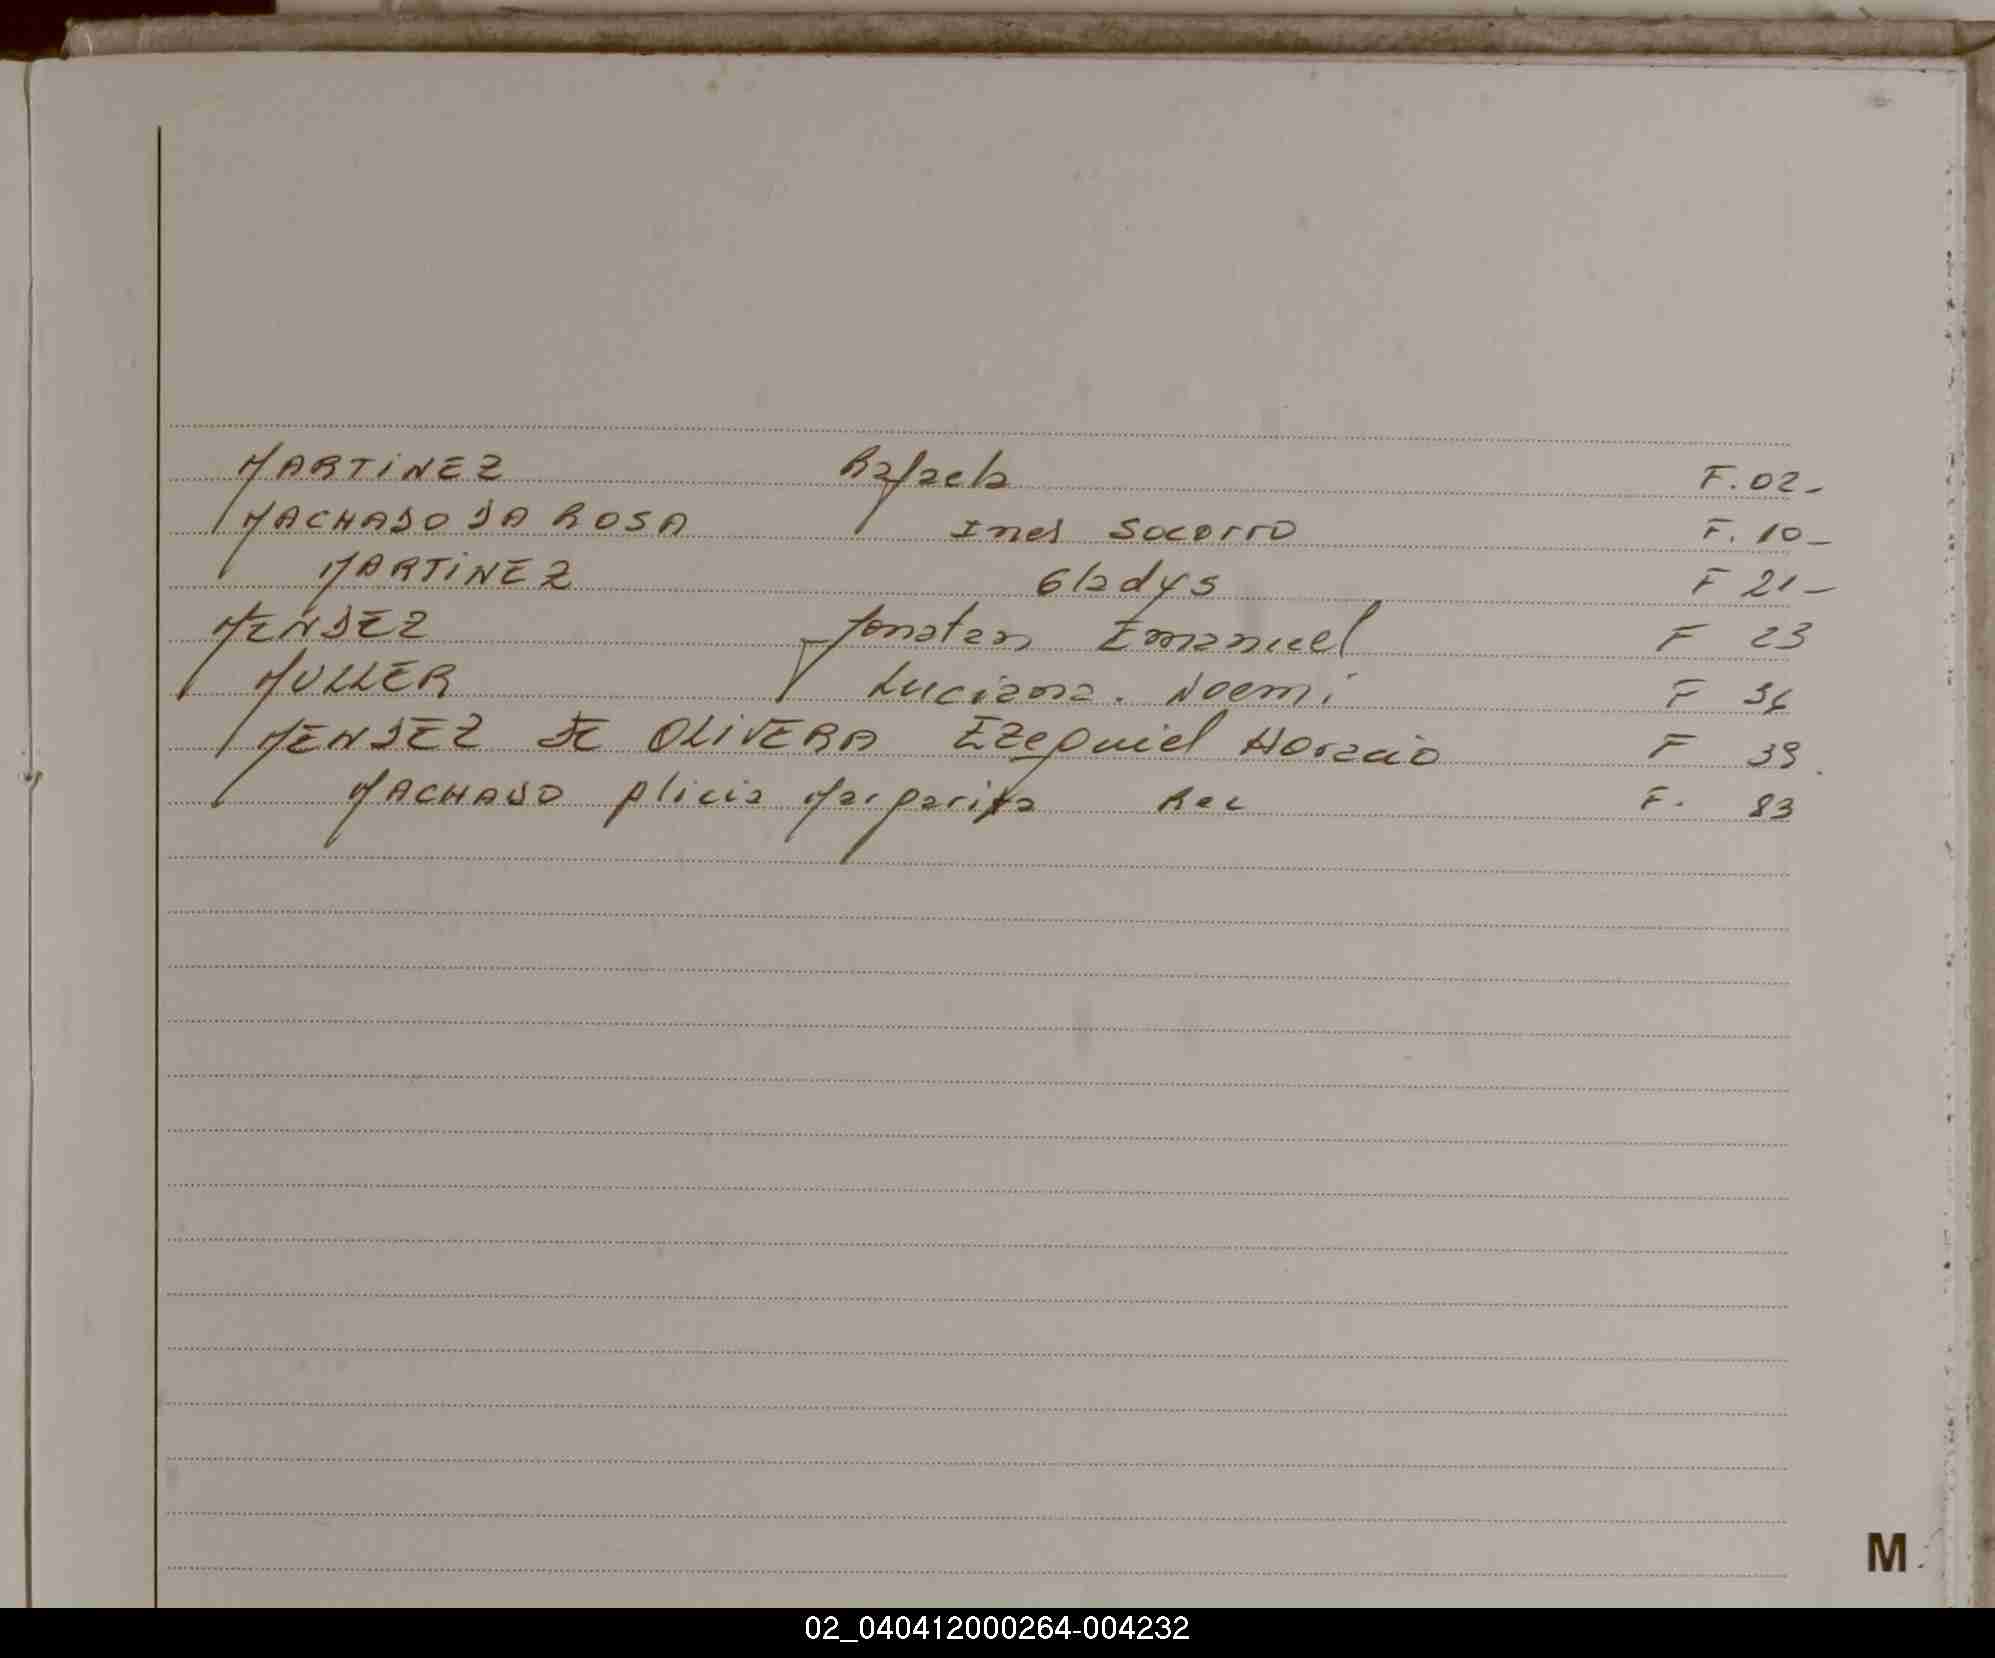 MARTINEZ Rafaela F. 02-
MACHADO DA ROSA Ines Socorro F. 10-
MARTINEZ Gladys F 21-
MENDEZ Jonatan Emanuel F 23
MULLER Luciana. Noemi F 36
MENDEZ DE OLIVERA Ezequiel Horacio F 39
MACHADO Alicia Margarita Rec F. 83
M
02_040412000264-004232